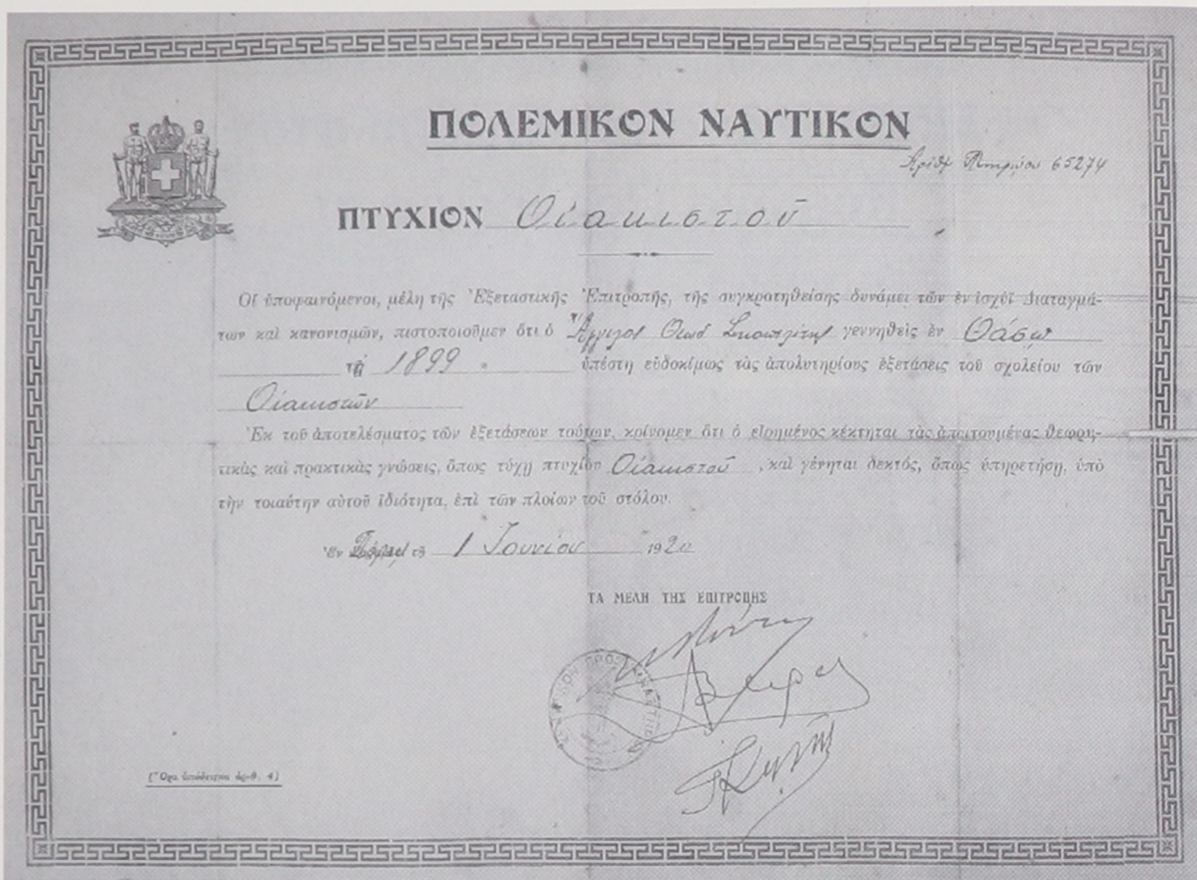 ΠΟΛΕΜΙΚΟΝ ΝΑΥΤΙΚΟΝ
Ἀριθ. Μητρῴου 65274
ΠΤΥΧΙΟΝ Οἰακιστοῦ
Οἱ ὑποφαινόμενοι, μέλη τῆς Ἐξεταστικῆς Ἐπιτροπῆς, τῆς συγκροτηθείσης δυνάμει τῶν ἐν ἰσχύϊ Διαταγμά-
των καὶ κανονισμῶν, πιστοποιοῦμεν ὅτι ὁ Ἄγγελος Θεοδ γεννηθεὶς ἐν Θάσῳ
τῷ 1899 ὑπέστη εὐδοκίμως τὰς ἀπολυτηρίους ἐξετάσεις τοῦ σχολείου τῶν
Οἰακιστῶν
Ἐκ τοῦ ἀποτελέσματος τῶν ἐξετάσεων τούτων, κρίνομεν ὅτι ὁ εἰρημένος κέκτηται τὰς ἀπαιτουμένας θεωρη-
τικὰς καὶ πρακτικὰς γνώσεις, ὅπως τύχῃ πτυχίου Οἰακιστοῦ, καὶ γένηται δεκτός, ὅπως ὑπηρετήσῃ, ὑπὸ
τὴν τοιαύτην αὐτοῦ ἰδιότητα, ἐπὶ τῶν πλοίων τοῦ στόλου.
Ἐν τῇ 1 Ἰουνίου 1920
ΤΑ ΜΕΛΗ ΤΗΣ ΕΠΙΤΡΟΠΗΣ
(Ὅρα ὑπόδειγμα ἀριθ. 4)